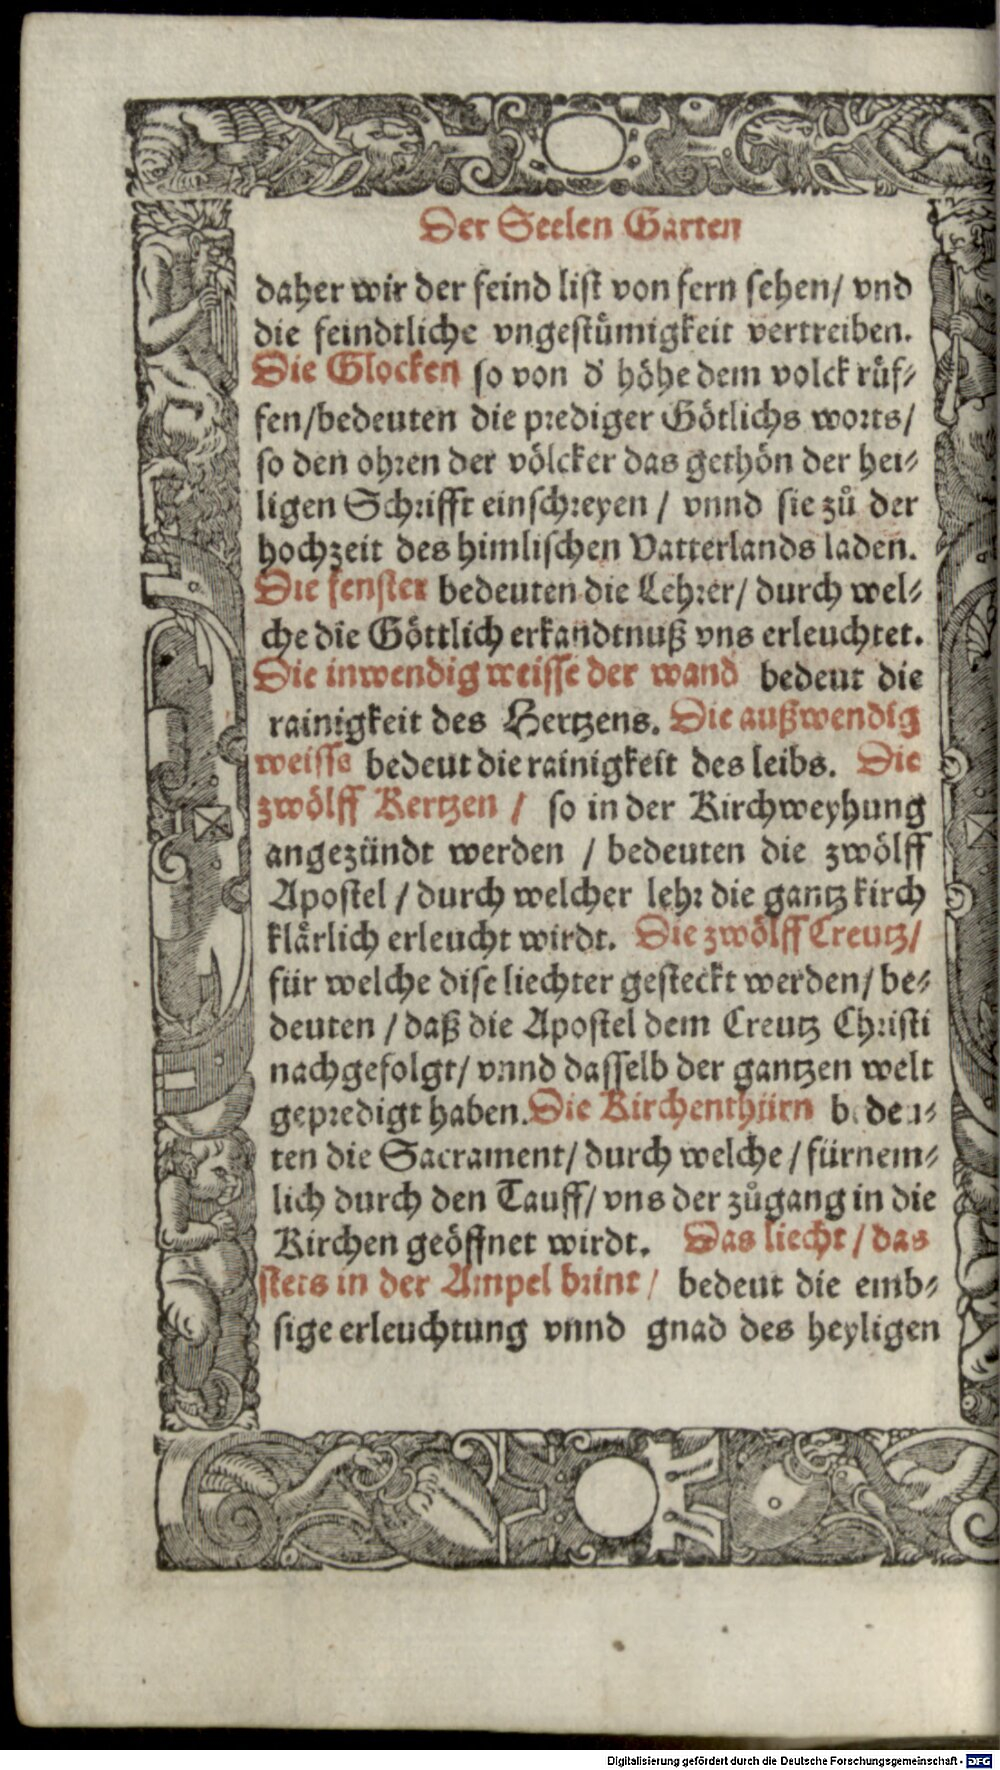 Der Seelen Garten
daher wir der feind list von fern sehen/ vnd
die feindtliche vngestümigkeit vertreiben.
Die Glocken so von d' höhe dem volck rüf⸗
fen/bedeuten die prediger Götlichs worts/
so den ohren der völcker das gethön der hei⸗
ligen Schrifft einschreyen / vnnd sie zů der
hochzeit des himlischen Vatterlands laden.
Die fenster bedeuten die Lehrer/ durch wel⸗
che die Göttlich erkandtnuß vns erleuchtet.
Die inwendig weisse der wand bedeut die
rainigkeit des Hertzens. Die außwendig
weisse bedeut die rainigkeit des leibs. Die
zwölff Kertzen / so in der Kirchweyhung
angezündt werden / bedeuten die zwölff
Apostel / durch welcher lehr die gantz kirch
klärlich erleucht wirdt. Die zwölff Creutz/
für welche dise liechter gesteckt werden/ be⸗
deuten / daß die Apostel dem Creutz Christi
nachgefolgt/ vnnd dasselb der gantzen welt
gepredigt haben. Die Kirchenthürn bedeu⸗
ten die Sacrament/ durch welche / fürnem⸗
lich durch den Tauff/ vns der zůgang in die
Kirchen geöffnet wirdt. Das liecht / das
stets in der Ampel brint / bedeut die emb⸗
sige erleuchtung vnnd gnad des heyligen
Digitalisierung gefördert durch die Deutsche Forschungsgemeinschaft - DFG